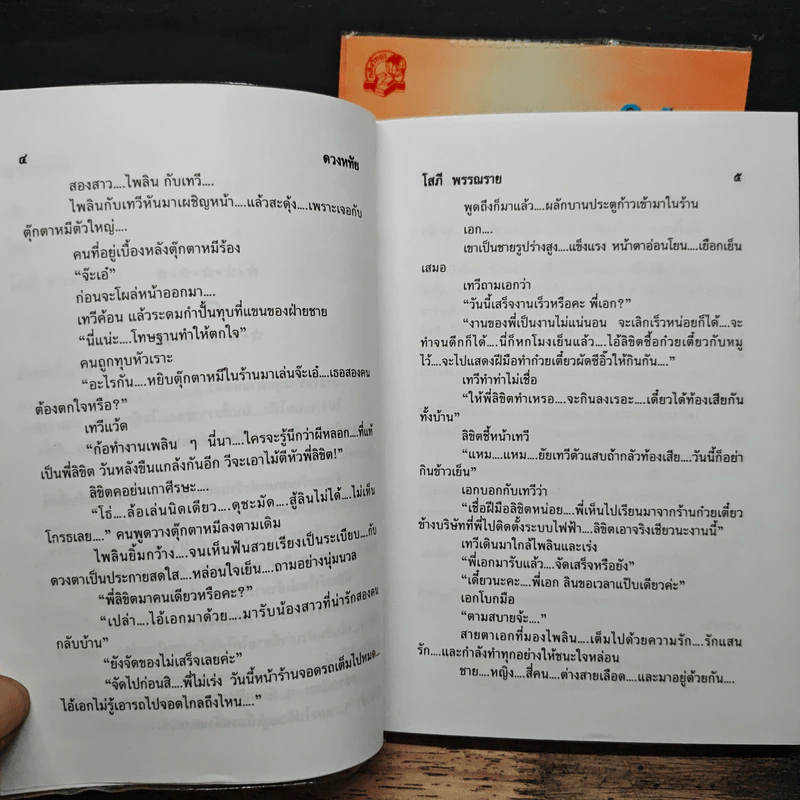 ๔
ดวงหทัย
สองสาว....ไพลิน กับเทวี....
ไพลินกับเทวีหันมาเผชิญหน้า....แล้วสะดุ้ง....เพราะเจอกับ
ตุ๊กตาหมีตัวใหญ่....
คนที่อยู่เบื้องหลังตุ๊กตาหมีร้อง
“จ๊ะเอ๋”
ก่อนจะโผล่หน้าออกมา....
เทวีค้อน แล้วระดมกำปั้นทุบที่แขนของฝ่ายชาย
“นี่แน่ะ....โทษฐานทำให้ตกใจ”
คนถูกทุบหัวเราะ
“อะไรกัน....หยิบตุ๊กตาหมีในร้านมาเล่นจ๊ะเอ๋....เธอสองคน
ต้องตกใจหรือ?”
เทวีแว้ด
“ก้อทำงานเพลิน ๆ นี่นา....ใครจะรู้นึกว่าผีหลอก....ที่แท้
เป็นพี่ลิขิต วันหลังขืนแกล้งกันอีก วีจะเอาไม้ตีหัวพี่ลิขิต!”
ลิขิตคอย่นเกาศีรษะ....
“โธ่....ล้อเล่นนิดเดียว....ดุชะมัด....สู้ลินไม่ได้....ไม่เห็น
โกรธเลย....” คนพูดวางตุ๊กตาหมีลงตามเดิม
ไพลินยิ้มกว้าง....จนเห็นฟันสวยเรียงเป็นระเบียบ....กับ
ดวงตาเป็นประกายสดใส....หล่อนใจเย็น....ถามอย่างนุ่มนวล
“พี่ลิขิตมาคนเดียวหรือคะ?”
“เปล่า....ไอ้เอกมาด้วย....มารับน้องสาวที่น่ารักสองคน
กลับบ้าน”
“ยังจัดของไม่เสร็จเลยค่ะ”
“จัดไปก่อนสิ....พี่ไม่เร่ง วันนี้หน้าร้านจอดรถเต็มไปหมด....
ไอ้เอกไม่รู้เอารถไปจอดไกลถึงไหน....”
โสภี พรรณราย
๕
พูดถึงก็มาแล้ว....ผลักบานประตูก้าวเข้ามาในร้าน
เอก....
เขาเป็นชายรูปร่างสูง....แข็งแรง หน้าตาอ่อนโยน....เยือกเย็น
เสมอ
เทวีถามเอกว่า
“วันนี้เสร็จงานเร็วหรือคะ พี่เอก?”
“งานของพี่เป็นงานไม่แน่นอน จะเลิกเร็วหน่อยก็ได้....จะ
ทำจนดึกก็ได้....นี่ก็หกโมงเย็นแล้ว....ไอ้ลิขิตซื้อก๋วยเตี๋ยวกับหมู
ไว้....จะไปแสดงฝีมือทำก๋วยเตี๋ยวผัดซีอิ๊วให้กินกัน....”
เทวีทำท่าไม่เชื่อ
“ให้พี่ลิขิตทำเหรอ....จะกินลงเรอะ....เดี๋ยวได้ท้องเสียกัน
ทั้งบ้าน”
ลิขิตชี้หน้าเทวี
“แหม....แหม....ยัยเทวีตัวแสบถ้ากลัวท้องเสีย....วันนี้ก็อย่า
กินข้าวเย็น”
เอกบอกกับเทวีว่า
“เชื่อฝีมือลิขิตหน่อย....พี่เห็นไปเรียนมาจากร้านก๋วยเตี๋ยว
ข้างบริษัทที่พี่ไปติดตั้งระบบไฟฟ้า....ลิขิตเอาจริงเชียวนะงานนี้”
เทวีเดินมาใกล้ไพลินและเร่ง
“พี่เอกมารับแล้ว....จัดเสร็จหรือยัง”
“เดี๋ยวนะคะ....พี่เอก ลินขอเวลาแป๊บเดียวค่ะ”
เอกโบกมือ
“ตามสบายจ้ะ....”
สายตาเอกที่มองไพลิน....เต็มไปด้วยความรัก....รักแสน
รัก....และกำลังทำทุกอย่างให้ชนะใจหล่อน
ชาย....หญิง....สี่คน....ต่างสายเลือด....และมาอยู่ด้วยกัน....